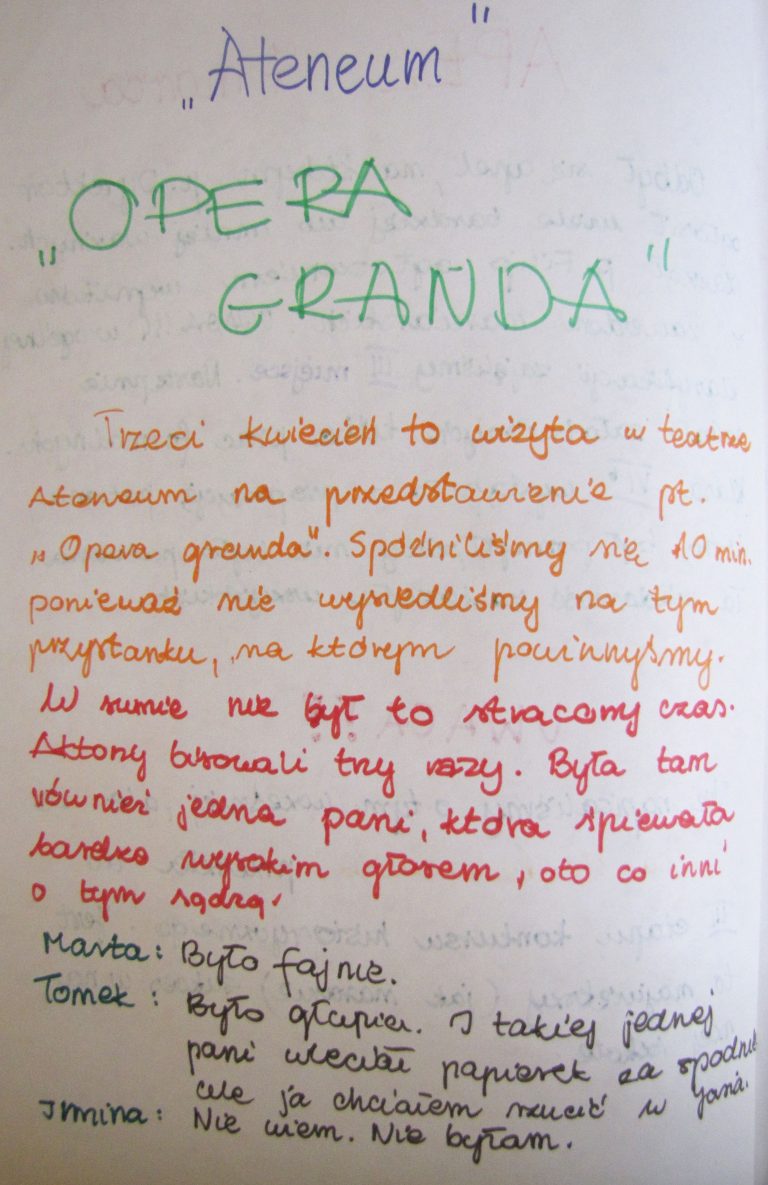 „Ateneum"
„OPERA
GRANDA"
Trzeci kwiecień to wizyta w teatrze
Ateneum na przedstawienie pt.
„Opera granda". Spóźniliśmy się 10 min.
ponieważ nie wysiedliśmy na tym
przystanku, na którym powinnyśmy.
W sumie nie był to stracony czas.
Aktorzy bisowali trzy razy. Była tam
również jedna pani, która śpiewała
bardzo wysokim głosem, oto co inni
o tym sądzą:
Marta: Było fajnie.
Tomek: Było głupio. I takiej jednej
pani wleciał papierek za spodnie
ale ja chciałem rzucić w Jana.
Irmina: Nie wiem. Nie byłam.